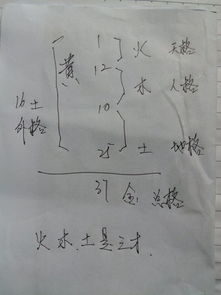 1 火 天格
黄 12
木 人格
16 土 10
外格
25 土 地格
37 金 总格
火木.土是三才